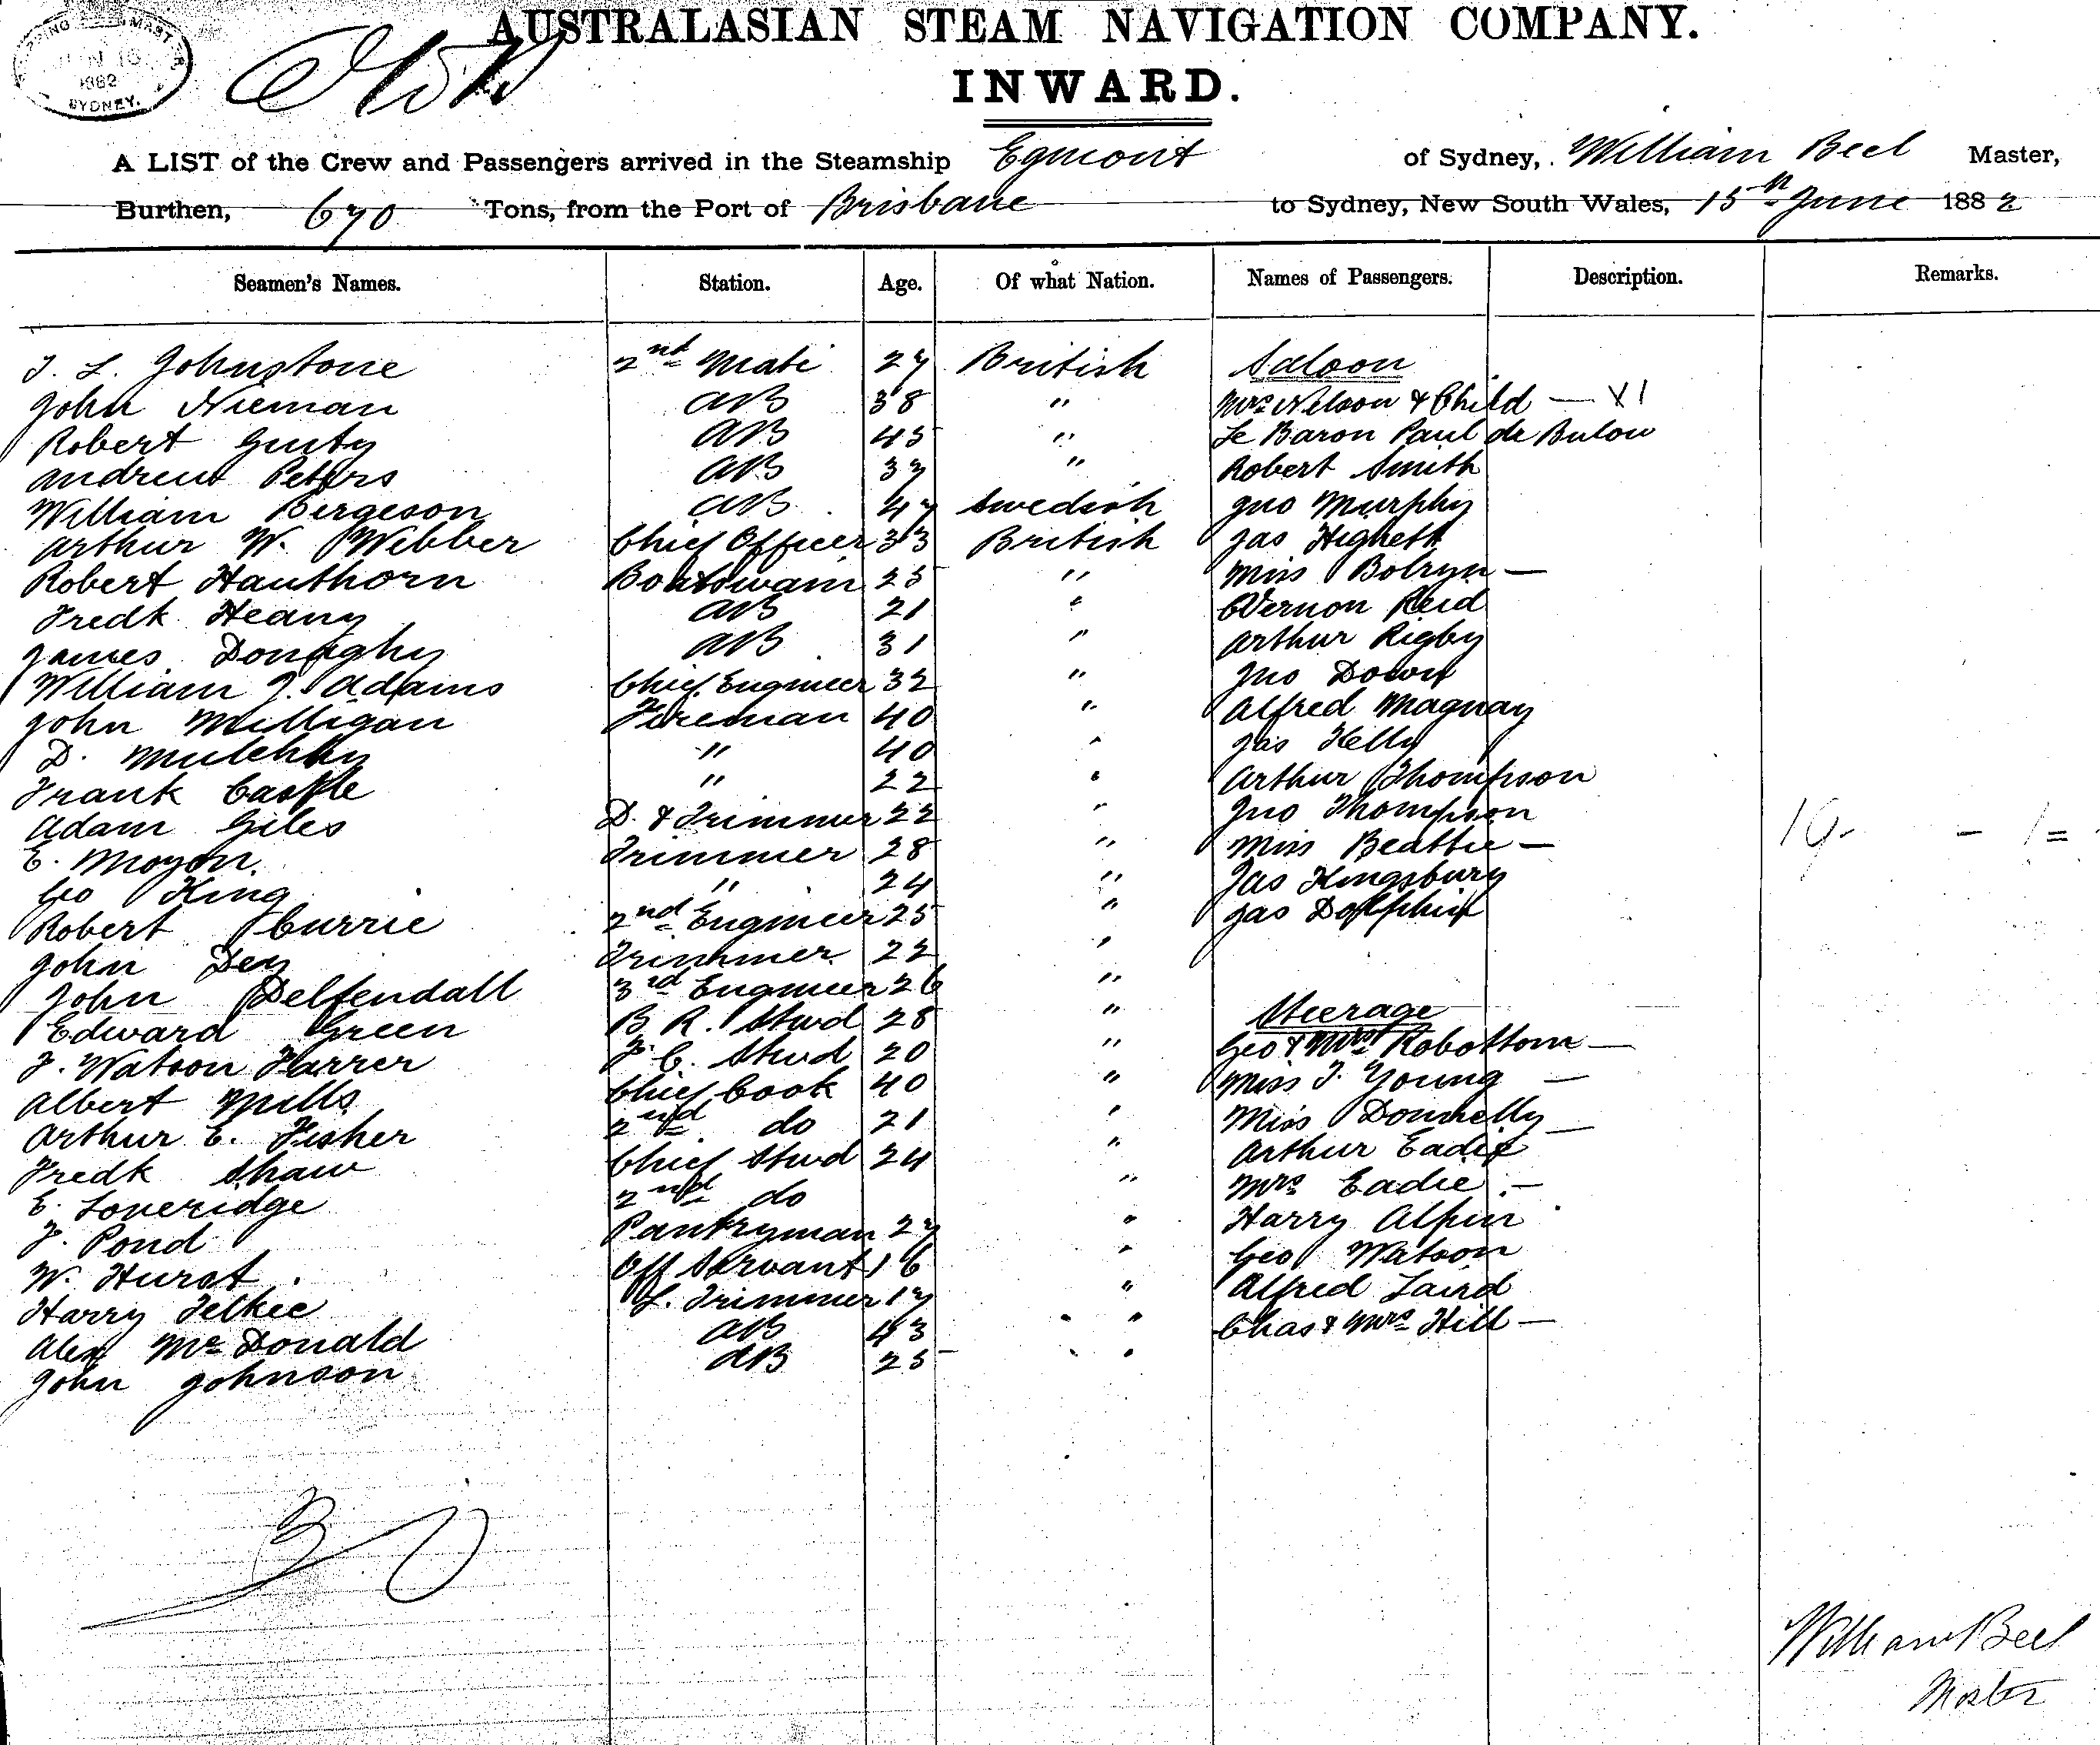 AUSTRALASIAN STEAM NAVIGATION COMPANY.
INWARD.
1882
SYDNEY.
A LIST of the Crew and Passengers arrived in the Steamship Egmont of Sydney, William Beel Master,
Burthen, 670 Tons, from the Port of Brisbane to Sydney, New South Wales, 15th June 1882
Seamen's Names. Station. Age. Of what Nation. Names of Passengers. Description. Remarks.
J. L. Johnstone 2nd Mate 27 British Saloon
John Nieman AB 38 " Mrs Nelson & Child — X1
Robert AB 45 " Le Baron Paul de Bulow
Andrew Peters AB 37 " Robert Smith
William Bergeson AB 47 Swedish Jno Murphy
Arthur W. Webber Chief Officer 33 British Jas Highett
Robert Hauthorn Boatswain 25 " Miss —
Fredk Heany AB 21 " Vernon Reid
James Donaghy AB 31 " Arthur Rigby
William J. Adams Chief Engineer 32 " Jno Down
John Milligan Fireman 40 " Alfred Magnay
D. " 40 " Jas Kelly
Frank Castle " 22 " Arthur Thompson
Adam Giles D. & Trimmer 22 " Jno Thompson
E. Moyon. Trimmer 28 " Miss Beattie —
Geo King " 24 " Jas Kingsbury
Robert Currie 2nd Engineer 25 " Jas Dolphin
John Dey Trimmer 22 "
John Delfendall 3rd Engineer 26 "
Edward Green B. R. Stwd 28 " Steerage
J. Watson Farrer F. C. Stwd 20 " Geo & Mrs Robottom —
Albert Mills Chief Cook 40 " Miss J. Young —
Arthur E. Fisher 2nd do 21 " Miss Donnelly —
Fredk Shaw Chief Stwd 24 " Arthur Eadie
E. Loveridge 2nd do " Mrs Eadie —
J. Pond Pantryman 27 " Harry Alpin
W. Hurst Off Servant 16 " Geo Watson
Harry Felkie L. Trimmer 17 " Alfred Laird
Alex McDonald AB 43 " " Chas & Mrs Hill —
John Johnson AB 25 " "
19 — 1 =
William Beel
Master